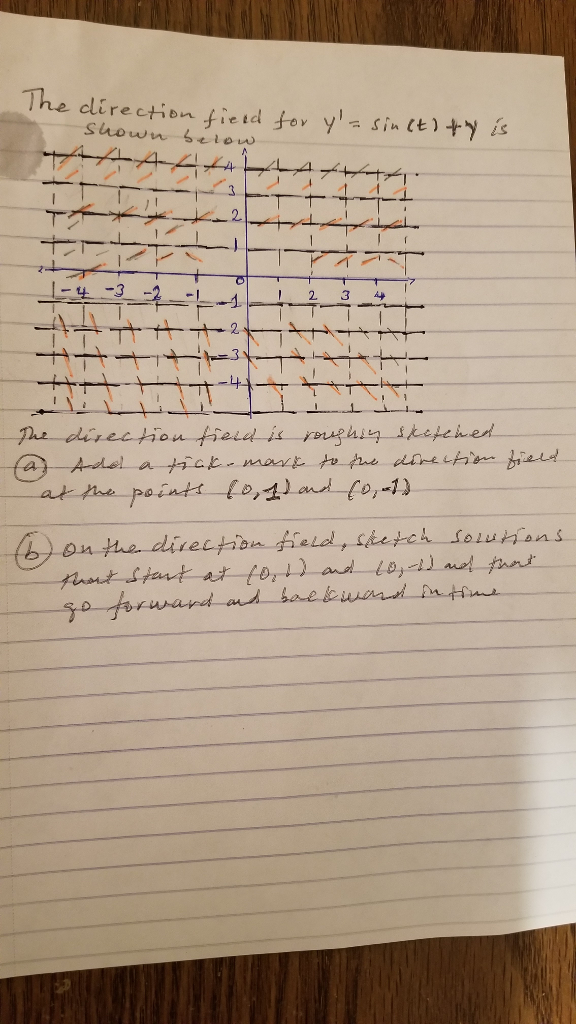 The direction field for y' = sin(t) + y is
shown below
4
3
2
1
-4 -3 -2 -1 0 1 2 3 4
-1
-2
-3
-4
The direction field is roughly sketched
(a) Add a tick-mark to the direction field
at the points (0,1) and (0,-1)
(b) On the direction field, sketch solutions
that start at (0,1) and (0,-1) and that
go forward and backward in time